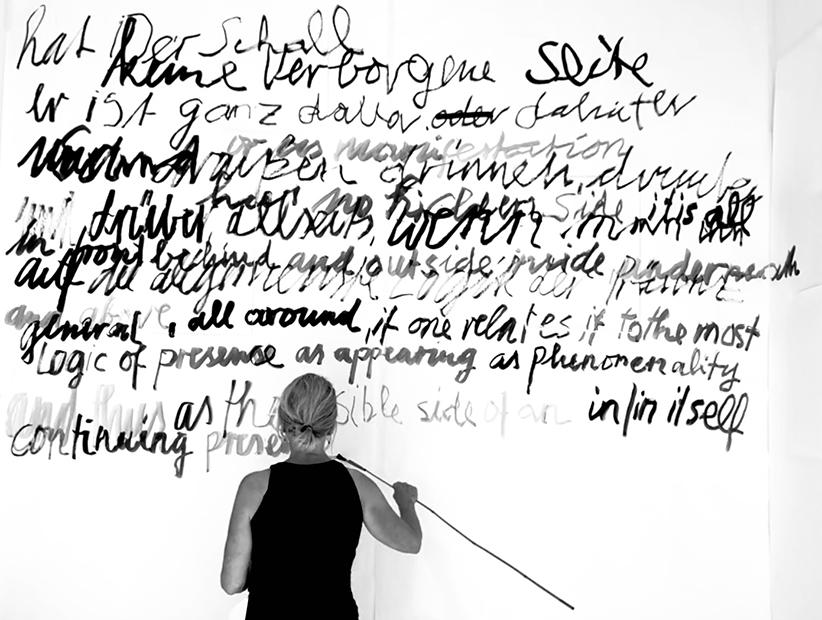 hat Der Schall
keine verborgene Seite
er ist ganz davor oder dahinter
or as manifestation
draußen drinnen, drunter
has no hidden side it is all
drüber allseits, wenn man
in front behind and outside inside underneath
auf die allgemeinste Logik der Präsenz
and above
general, all around, if one relates it to the most
Logic of presence as appearing as phenomenality
and thus as the sible side of an in/in itself
continuing prese